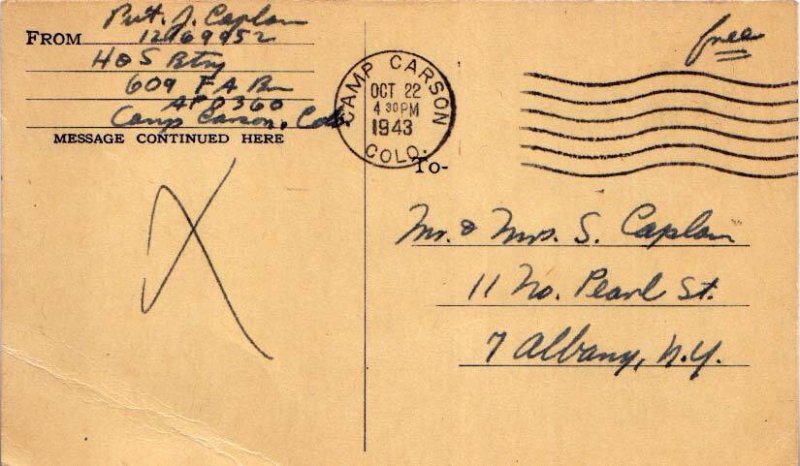 Pvt. J. Caplan
FROM 12169952
H & S Btry
609 F A Bn
APO 360
Camp Carson, Colo.
MESSAGE CONTINUED HERE
X
CAMP CARSON
OCT 22
4 30 PM
1943
COLO.
free
To-
Mr. & Mrs. S. Caplan
11 No. Pearl St.
7 Albany, N.Y.